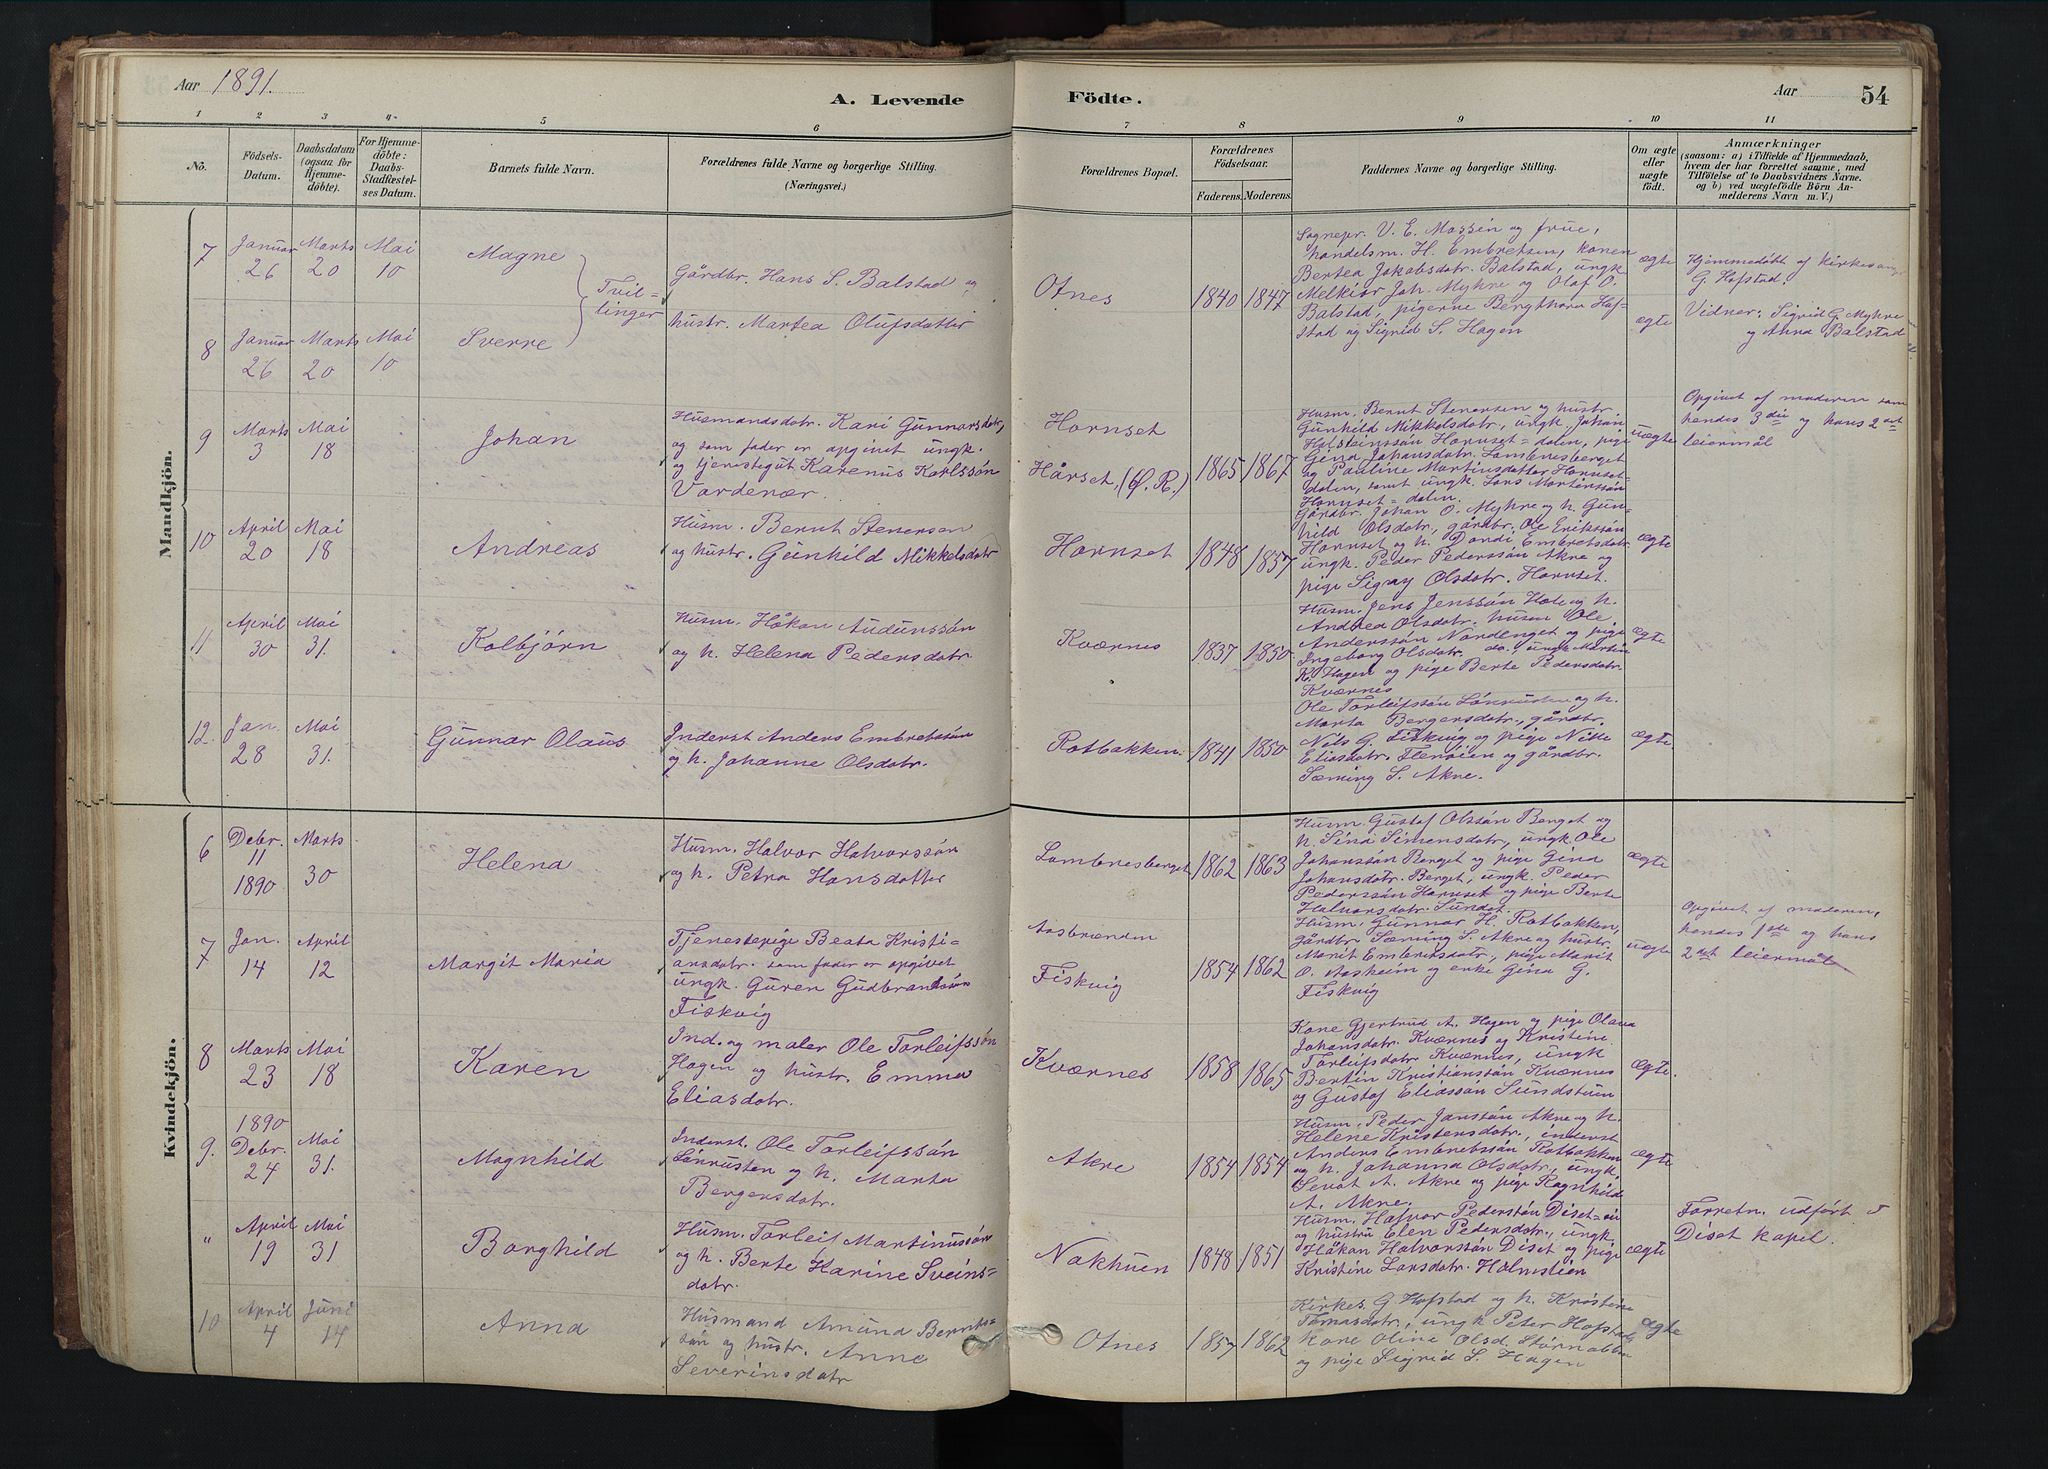 Aar 1891.
A. Levende Födte.
Aar 54
1 2 3 4 5 6 7 8 9 10 11
No.
Födsels-Datum.
Daabsdatum (ogsaa för Hjemmedöbte).
For Hjemmedöbte: Daabs-Stadfæstelses Datum.
Barnets fulde Navn.
Forældrenes fulde Navne og borgerlige Stilling.
(Næringsvei.)
Forældrenes Bopæl.
Forældrenes Födselsaar.
Faderens. Moderens.
Faddernes Navne og borgerlige Stilling.
Om ægte eller uægte födt.
Anmærkninger
(saasom: a) i Tilfælde af Hjemmedaab,
hvem der har forrettet samme, med
Tilföielse af to Daabsvidners Navne.
og b) ved uægtefödte Börn An-
melderens Navn m. V.)
Mandkjön.
7 Januar 26 Marts 20 Mai 10 Magne
Tvil=
linger
Gårdbr. Hans S. Balstad og
hustr. Martea Olufsdatter
Otnes 1840 1847
Sognepr. V. E. Massén og frue,
handelsm. H. Embretsen, konen
Bertea Jakobsdotr. Balstad, ungk
Melkior Joh. Myhre og Olaf O.
Balstad, pigerne Bergthora Hof=
stad og Sigrid S. Hagen
ægte
Hjemmedöbt af kirkesanger
G. Hofstad.
Vidner: Sigrid G. Myhre
og Anna Balstad
8 Januar 26 Marts 20 Mai 10 Sverre
ægte
9 Marts 3 Mai 18 Johan
Husmandsdotr. Kari Gunnarsdotr,
og som fader er opgivet ungk.
og tjenestegut Karenus Karlssön
Vardenær.
Hornset
Hårset, (Ø. R.) 1865 1867
Husm. Bernt Stenersen og hustr.
Gunhild Mikkelsdotr, ungk. Johan
Halsteinssön Hornset=dalen, pige
Gina Johansdotr. Lombnesberget
og Pauline Martinsdatter Hornset-
dalen, samt ungk. Lars Martinssön
Hornset=dalen.
uægte
Opgivet af moderen som
hendes 3die og hans 2det
leiermål
10 April 20 Mai 18 Andreas
Husm. Bernt Stenersen
og hustr. Gunhild Mikkelsdotr
Hornset 1848 1857
Gårdbr. Johan O. Myhre og h. Gun-
hild Olsdotr, gårdbr. Ole Erikssön
Hornset og h. Dordi Embretsdotr.
ungk. Peder Pederssön Akre og
pige Signy Olsdotr. Hornset.
ægte
11 April 30 Mai 31. Kolbjörn
Husm. Håkon Audunssön
og h. Helena Pedersdotr.
Kværnes 1837 1850
Husm. Jens Jenssön Hole og h.
Andrea Olsdotr. husm Ole
Anderssön Nordenget og pige
Ingeborg Olsdotr. do., ungk Martin
K. Hagen og pige Berte Pedersdotr.
Kværnes
ægte
12. Jan. 28 Mai 31. Gunnar Olaus
Inderst Anders Embretssön
og h. Johanne Olsdotr.
Rotbakken 1841 1850
Ole Torleifssön Lönrusten og h.
Marta Bergersdotr., gårdbr.
Nils G. Fiskvig og pige Nille
Eliasdotr. Flenöien og gårdbr.
Sæming S. Akre.
ægte
Kvindekjön.
6 Debr. 11 1890 Marts 30 Helena
Husm. Halvor Halvorssön
og h. Petra Hansdatter
Lombnesberget 1862 1863
Husm. Gustaf Olssön Berget og
h. Sina Simensdotr, ungk Ole
Johanssön Berget og pige Gina
Johansdotr. Berget, ungk. Peder
Pederssön Hornset og pige Berte
Halvorsdotr. Sundet.
ægte
7 Jan. 14 April 12 Margit Maria
Tjenestepige Beata Kristi=
ansdotr. som fader er opgivet
ungk. Guren Gudbrandssön
Fiskvig
Aasbrænden
Fiskvig 1854 1862
Husm. Gunnar H. Rotbakken,
gårdbr. Sæming S. Akre og hustr.
Marit Embretsdotr., pige Marit
O. Aasheim og enke Gina G.
Fiskvig
uægte
Opgivet af moderen,
hendes 1ste og hans
2det leiermål
8 Marts 23 Mai 18 Karen
Ind. og maler Ole Torleifssön
Hagen og hustr. Emma
Eliasdotr.
Kværnes 1858 1865
Kone Gjertrud A. Hagen og pige Olava
Johansdotr. Kværnes og Kristine
Torleifsdotr. Kværnes, ungk
Bertin Kristianssön Kværnes
og Gustaf Eliassön Sundstuen
ægte
9. 1890 Debr. 24 Mai 31. Magnhild
Inderst. Ole Torleifssön
Lönrusten og h. Marta
Bergersdotr.
Akre 1854 1854
Husm. Peder Janssön Akre og h.
Helene Kristensdotr., inderst
Anders Embretssön Rotbakken
og h. Johanna Olsdotr, ungk,
Sevat A. Akre og pige Ragnhild
A. Akre.
ægte
" April 19 Mai 31 Borghild
Husm. Torleif Martinussön
og h. Berte Karine Sveins=
dotr.
Nakhuen 1848 1851
Husm. Halvor Pederssön Diset=
og hustru Elen Pedersdotr., ungk.
Håkan Halvorssön Diset og pige
Kristine Larsdotr. Holmstien
ægte
Forretn. udført i
Diset kapel.
10 April 4 Juni 14 Anna
Husmand Amund Bernts=
sön og hustr. Anne
Severinsdotr
Otnes 1857 1862
Kirkes. G Hofstad og h. Kristine
Tomasdotr., ungk Peter Hofstad,
kone Oline Olsd. Störnabben
og pige Sigrid S. Hagen
ægte